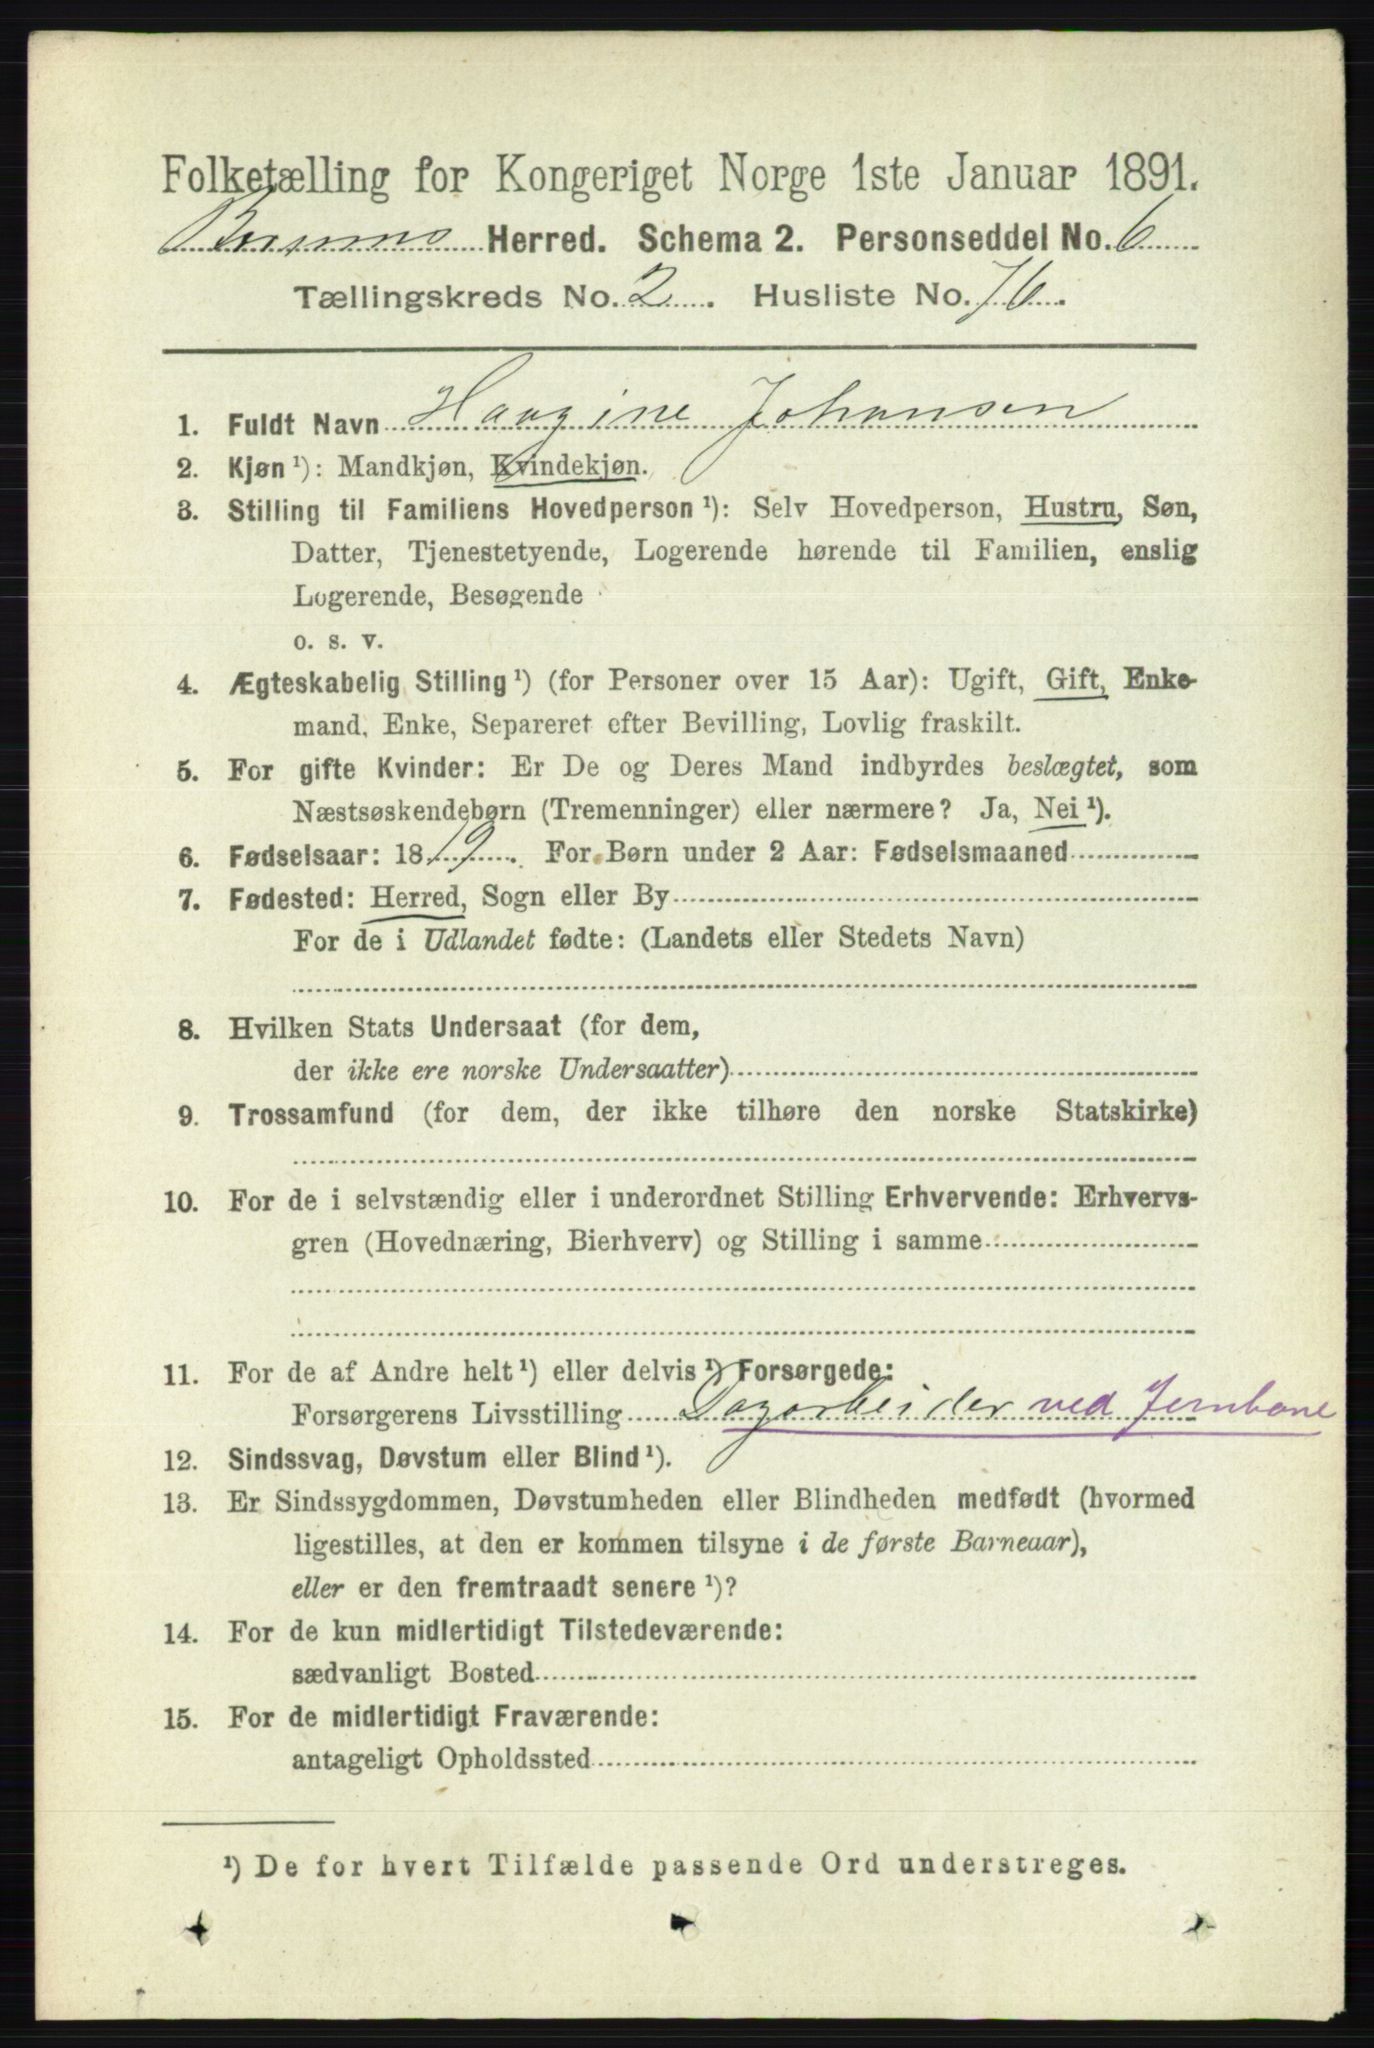 Folketælling for Kongeriget Norge 1ste Januar 1891.
Herred. Schema 2. Personseddel No. 6
Tællingskreds No. 2. Husliste No. 76.
1. Fuldt Navn Haagine Johansen
2. Kjøn ¹): Mandkjøn, Kvindekjøn.
3. Stilling til Familiens Hovedperson ¹): Selv Hovedperson, Hustru, Søn,
Datter, Tjenestetyende, Logerende hørende til Familien, enslig
Logerende, Besøgende
o. s. v.
4. Ægteskabelig Stilling ¹) (for Personer over 15 Aar): Ugift, Gift, Enke-
mand, Enke, Separeret efter Bevilling, Lovlig fraskilt.
5. For gifte Kvinder: Er De og Deres Mand indbyrdes beslægtet, som
Næstsøskendebørn (Tremenninger) eller nærmere? Ja, Nei ¹).
6. Fødselsaar: 1819. For Børn under 2 Aar: Fødselsmaaned
7. Fødested: Herred, Sogn eller By
For de i Udlandet fødte: (Landets eller Stedets Navn)
8. Hvilken Stats Undersaat (for dem,
der ikke ere norske Undersaatter)
9. Trossamfund (for dem, der ikke tilhøre den norske Statskirke)
10. For de i selvstændig eller i underordnet Stilling Erhvervende: Erhvervs-
gren (Hovednæring, Bierhverv) og Stilling i samme
11. For de af Andre helt ¹) eller delvis ¹) Forsørgede:
Forsørgerens Livsstilling Dagarbeider ved Jernbane
12. Sindssvag, Døvstum eller Blind ¹).
13. Er Sindssygdommen, Døvstumheden eller Blindheden medfødt (hvormed
ligestilles, at den er kommen tilsyne i de første Barneaar),
eller er den fremtraadt senere ¹)?
14. For de kun midlertidigt Tilstedeværende:
sædvanligt Bosted
15. For de midlertidigt Fraværende:
antageligt Opholdssted
¹) De for hvert Tilfælde passende Ord understreges.